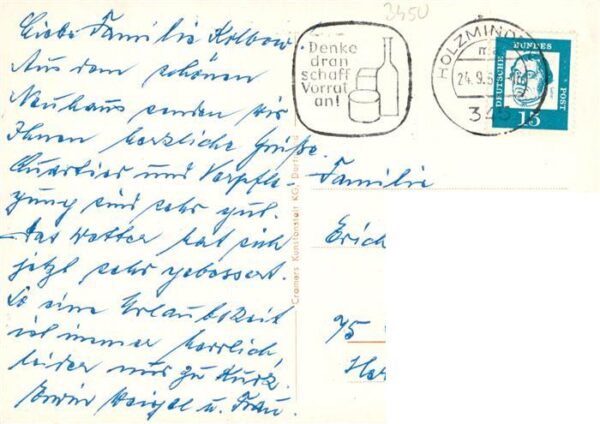 3450
Liebe Familie Kolbow.
Aus dem schönen
Neuhaus senden wir
Ihnen herzliche Grüße.
Quartier und Verpfle-
gung sind sehr gut.
Das Wetter hat sich
jetzt sehr gebessert.
So eine Urlaubszeit
ist immer herrlich,
leider nur zu kurz.
Erwin u. Frau.
Denke
dran
schaff
Vorrat
an!
HOLZMIND
24.9.6
345
DEUTSCHE
BUNDES
POST
15
Cramers Kunstanstalt KG, Dortmund
Familie
Erich
75
Her